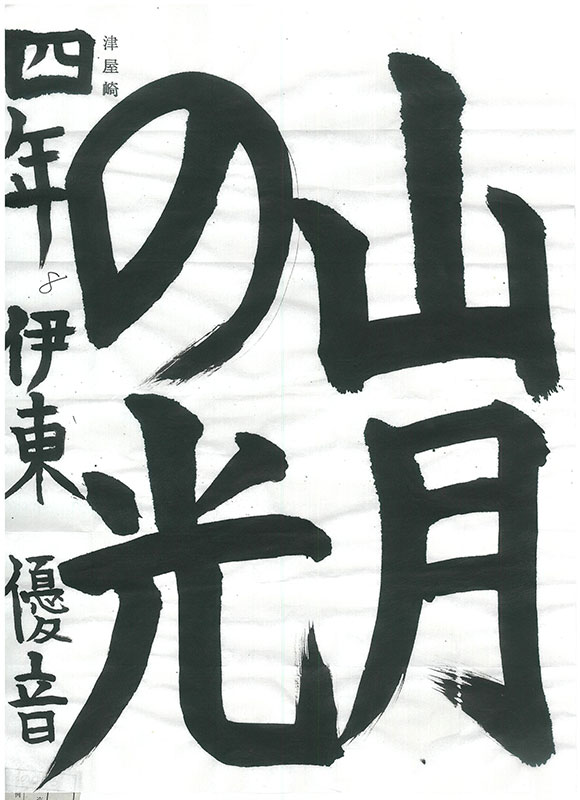 山月
の光
津屋崎
四年 伊東 優音
8